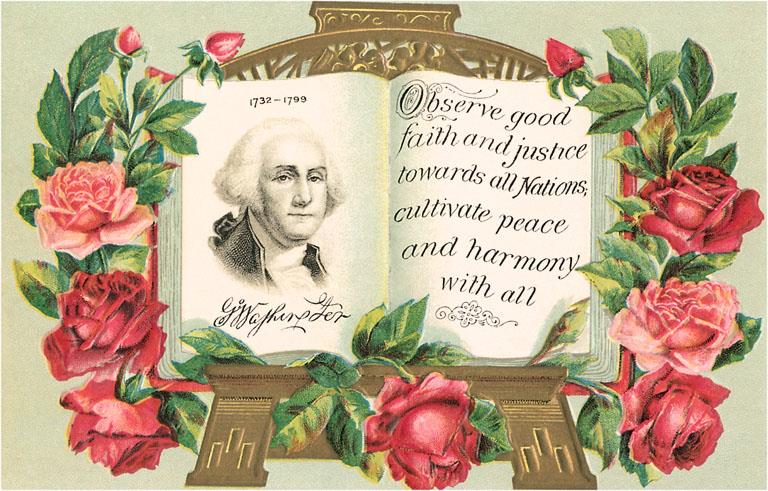 1732-1799
G:Washington
Observe good
faith and justice
towards all Nations;
cultivate peace
and harmony
with all